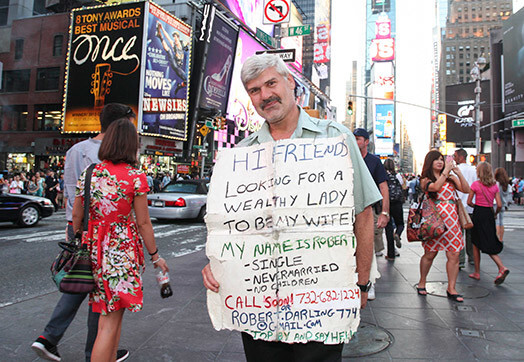 8 TONY AWARDS
BEST MUSICAL
once
NEWSIES
HI FRIENDS
LOOKING FOR A
WEALTHY LADY
TO BE MY WIFE!
MY NAME IS ROBERT
-SINGLE
-NEVER MARRIED
-NO CHILDREN
CALL SOON! 732-682-1224
OR
ROBERT.DARLING774
@GMAIL.COM
BY AND SAY